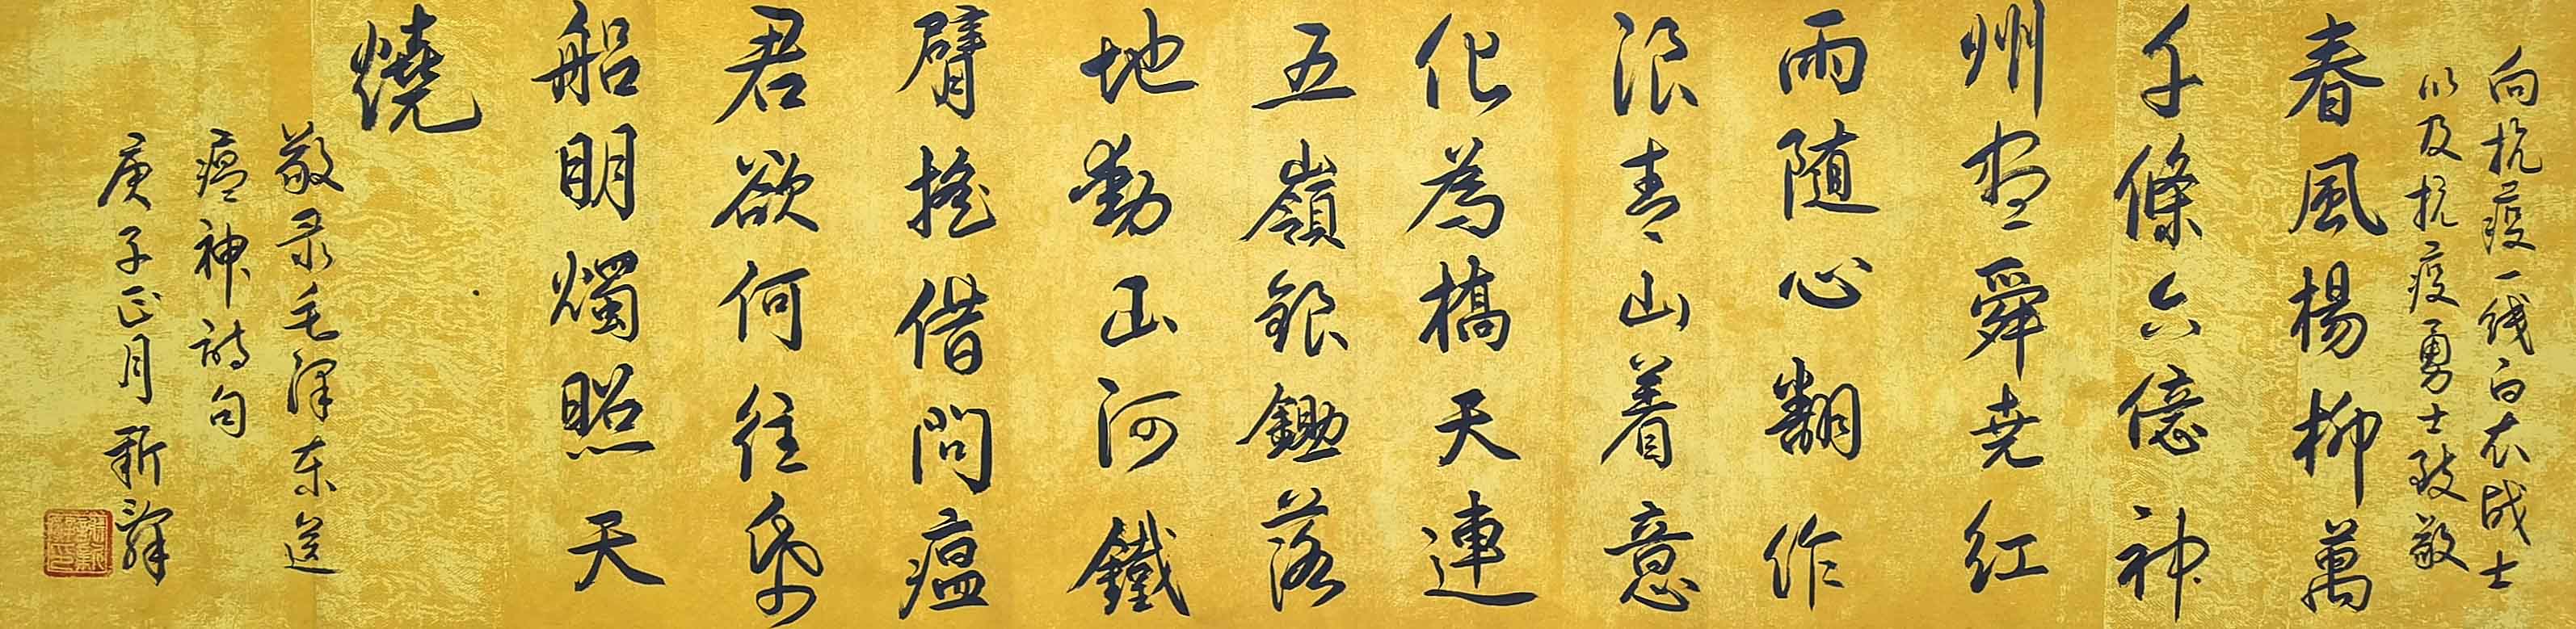 向抗疫一线白衣战士
以及抗疫勇士致敬
春風楊柳萬
千條六億神
州盡舜尭红
雨随心翻作
浪青山着意
化為橋天連
五嶺銀鋤落
地動山河鐵
臂搖借問瘟
君欲何往帋
船明燭照天
燒
敬录毛泽东送
瘟神诗句
庚子正月新